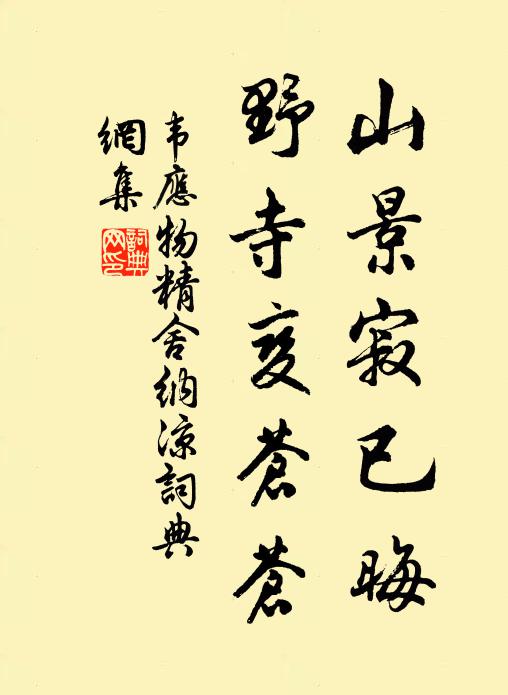 山景寂已晦
野寺变蒼蒼
韦應物精舍納凉詞典
網集
詞典
网印